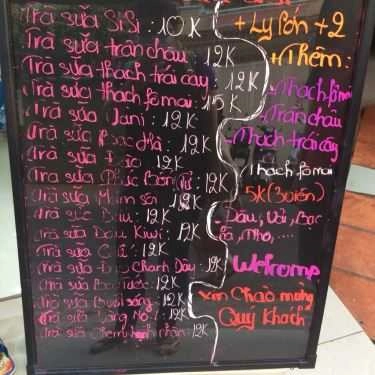 Trà sữa SiSi : 10K
Trà sữa trân châu : 12K
Trà sữa thạch trái cây : 12K
Trà sữa thạch fômai : 15K
Trà sữa Vani : 12K
Trà sữa Bạc hà : 12K
Trà sữa Dừa : 12K
Trà sữa Phúc Bồn Tử : 12K
Trà sữa Mâm xôi 12K
Trà sữa : 12K
Trà sữa Dâu Kiwi : 12K
Trà sữa : 12K
Trà sữa Chanh Dây : 12K
Trà sữa : 12K
Trà sữa : 12K
Trà sữa : 12K
Trà sữa : 12K
+ Ly lớn + 2
+ Thêm :
- Thạch fô mai
- Trân châu
- Thạch trái cây
1 hach fo mai
5K (3 viên)
- Dâu, Vải, Bạc
hà, Nho, ...
Xin Chào mừng
Quý Khách